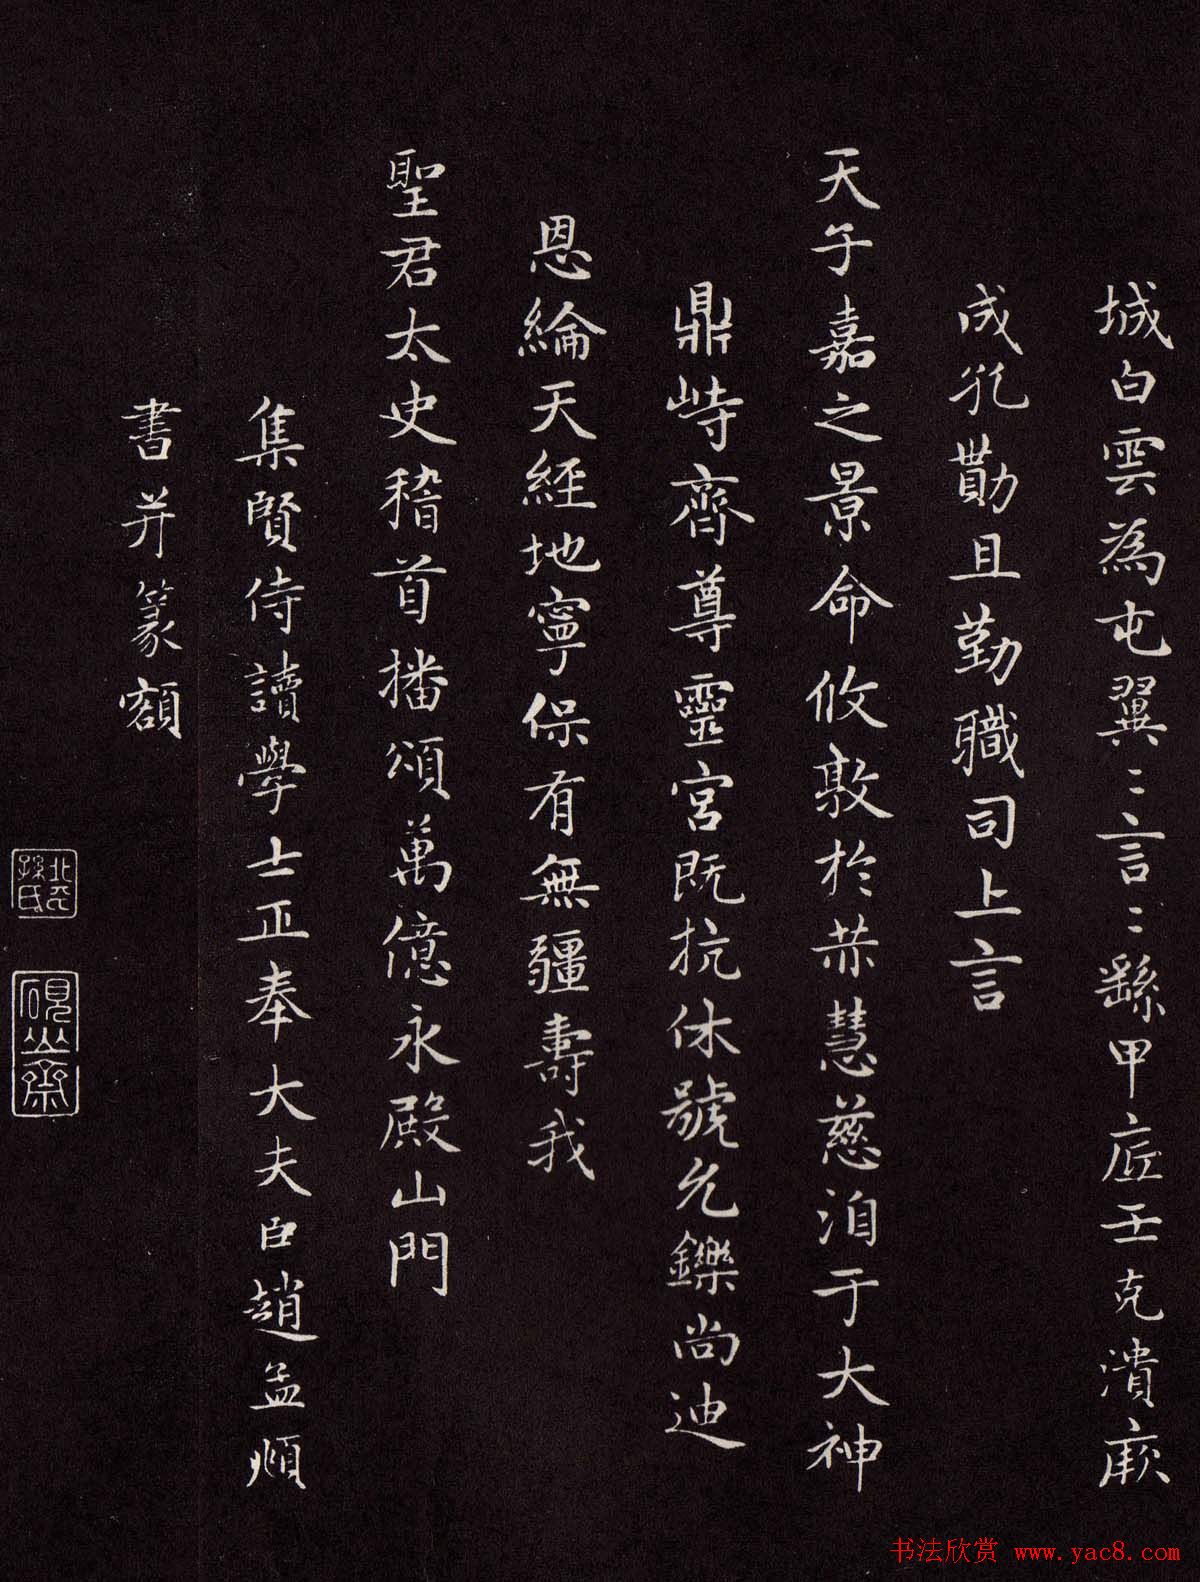 城白雲為屯翼〻言〻繇甲庢壬克潰厥
成孔勩且勤職司上言
天子嘉之景命攸敦於恭慧慈洎于大神
鼎峙齊尊靈宮既抗休號允鑠尚迪
恩綸天經地寧保有無疆壽我
聖君太史稽首播頌萬億永殿山門
集賢侍讀學士正奉大夫臣趙孟頫
書并篆額
北平孫氏
硯山齋
书法欣赏 www.yac8.com